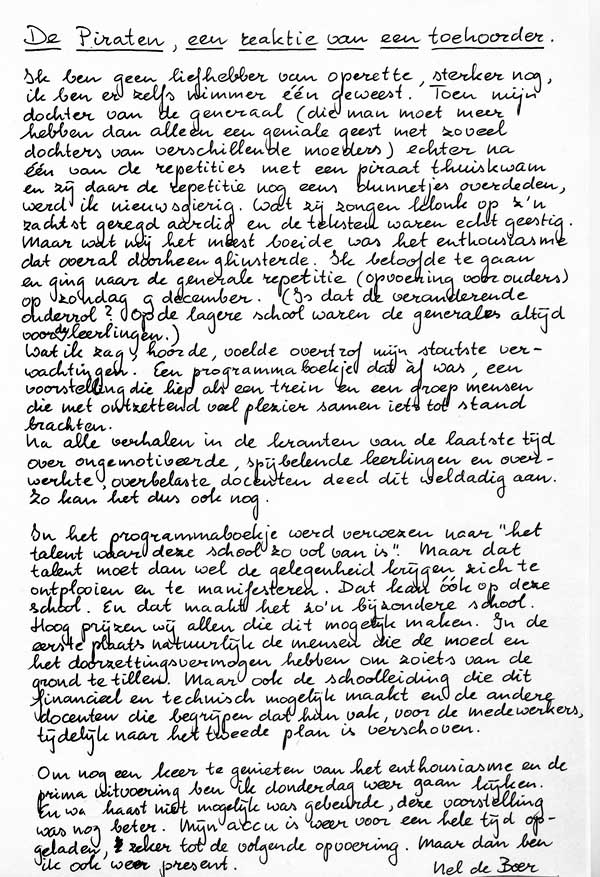 De Piraten, een reaktie van een toehoorder.
Ik ben geen liefhebber van operette, sterker nog,
ik ben er zelfs nimmer één geweest. Toen mijn
dochter van de generaal (die man moet meer
hebben dan alleen een geniale geest met zoveel
dochters van verschillende moeders) echter na
één van de repetities met een piraat thuiskwam
en zij daar de repetitie nog eens dunnetjes overdeden,
werd ik nieuwsgierig. Wat zij zongen klonk op z'n
zachtst gezegd aardig en de teksten waren echt geestig.
Maar wat mij het meest boeide was het enthousiasme
dat overal doorheen glinsterde. Ik beloofde te gaan
en ging naar de generale repetitie (opvoering voor ouders)
op zondag 9 december. (Is dat de veranderende
ouderrol? Op de lagere school waren de generales altijd
voor de leerlingen.)
Wat ik zag, hoorde, voelde overtrof mijn stoutste ver-
wachtingen. Een programmaboekje dat àf was, een
voorstelling die liep als een trein en een groep mensen
die met ontzettend veel plezier samen iets tot stand
brachten.
Na alle verhalen in de kranten van de laatste tijd
over ongemotiveerde, spijbelende leerlingen en over-
werkte, overbelaste docenten deed dit weldadig aan.
Zo kan het dus ook nog.
In het programmaboekje werd verwezen naar "het
talent waar deze school zo vol van is". Maar dat
talent moet dan wel de gelegenheid krijgen zich te
ontplooien en te manifesteren. Dat kan óók op deze
school. En dat maakt het zo'n bijzondere school.
Hoog prijzen wij allen die dit mogelijk maken. In de
eerste plaats natuurlijk de mensen die de moed en
het doorzettingsvermogen hebben om zoiets van de
grond te tillen. Maar ook de schoolleiding die dit
financieel en technisch mogelijk maakt en de andere
docenten die begrijpen dat hun vak, voor de medewerkers,
tijdelijk naar het tweede plan is verschoven.
Om nog een keer te genieten van het enthousiasme en de
prima uitvoering ben ik donderdag weer gaan kijken.
En wa haast niet mogelijk was gebeurde, deze voorstelling
was nog beter. Mijn accu is weer voor een hele tijd op-
geladen, zeker tot de volgende opvoering. Maar dan ben
ik ook weer present. Nel de Boer